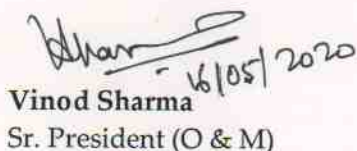 16/05/2020
Vinod Sharma
Sr. President (O & M)